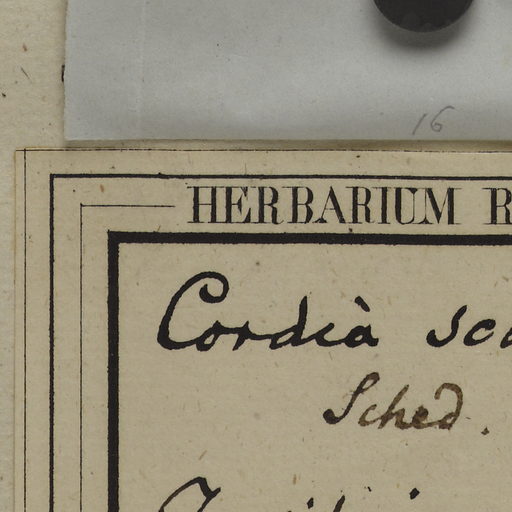 16
HERBARIUM R
Cordià sc
Sched.